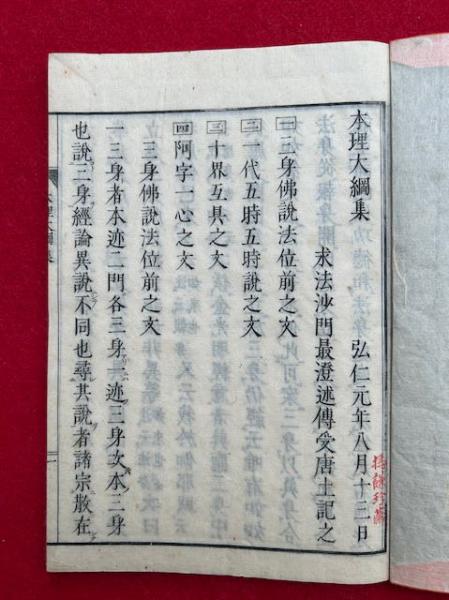 本理大綱集 弘仁元年八月十三日
求法沙門最澄述傳受唐土記之
一三身佛說法位前之文
二一代五時五時說之文
三十界互具之文
四阿字一心之文
三身佛說法位前之文
一三身者本迹二門各三身一迹三身次本三身
也說三身經論異說不同也尋其說者諸宗散在